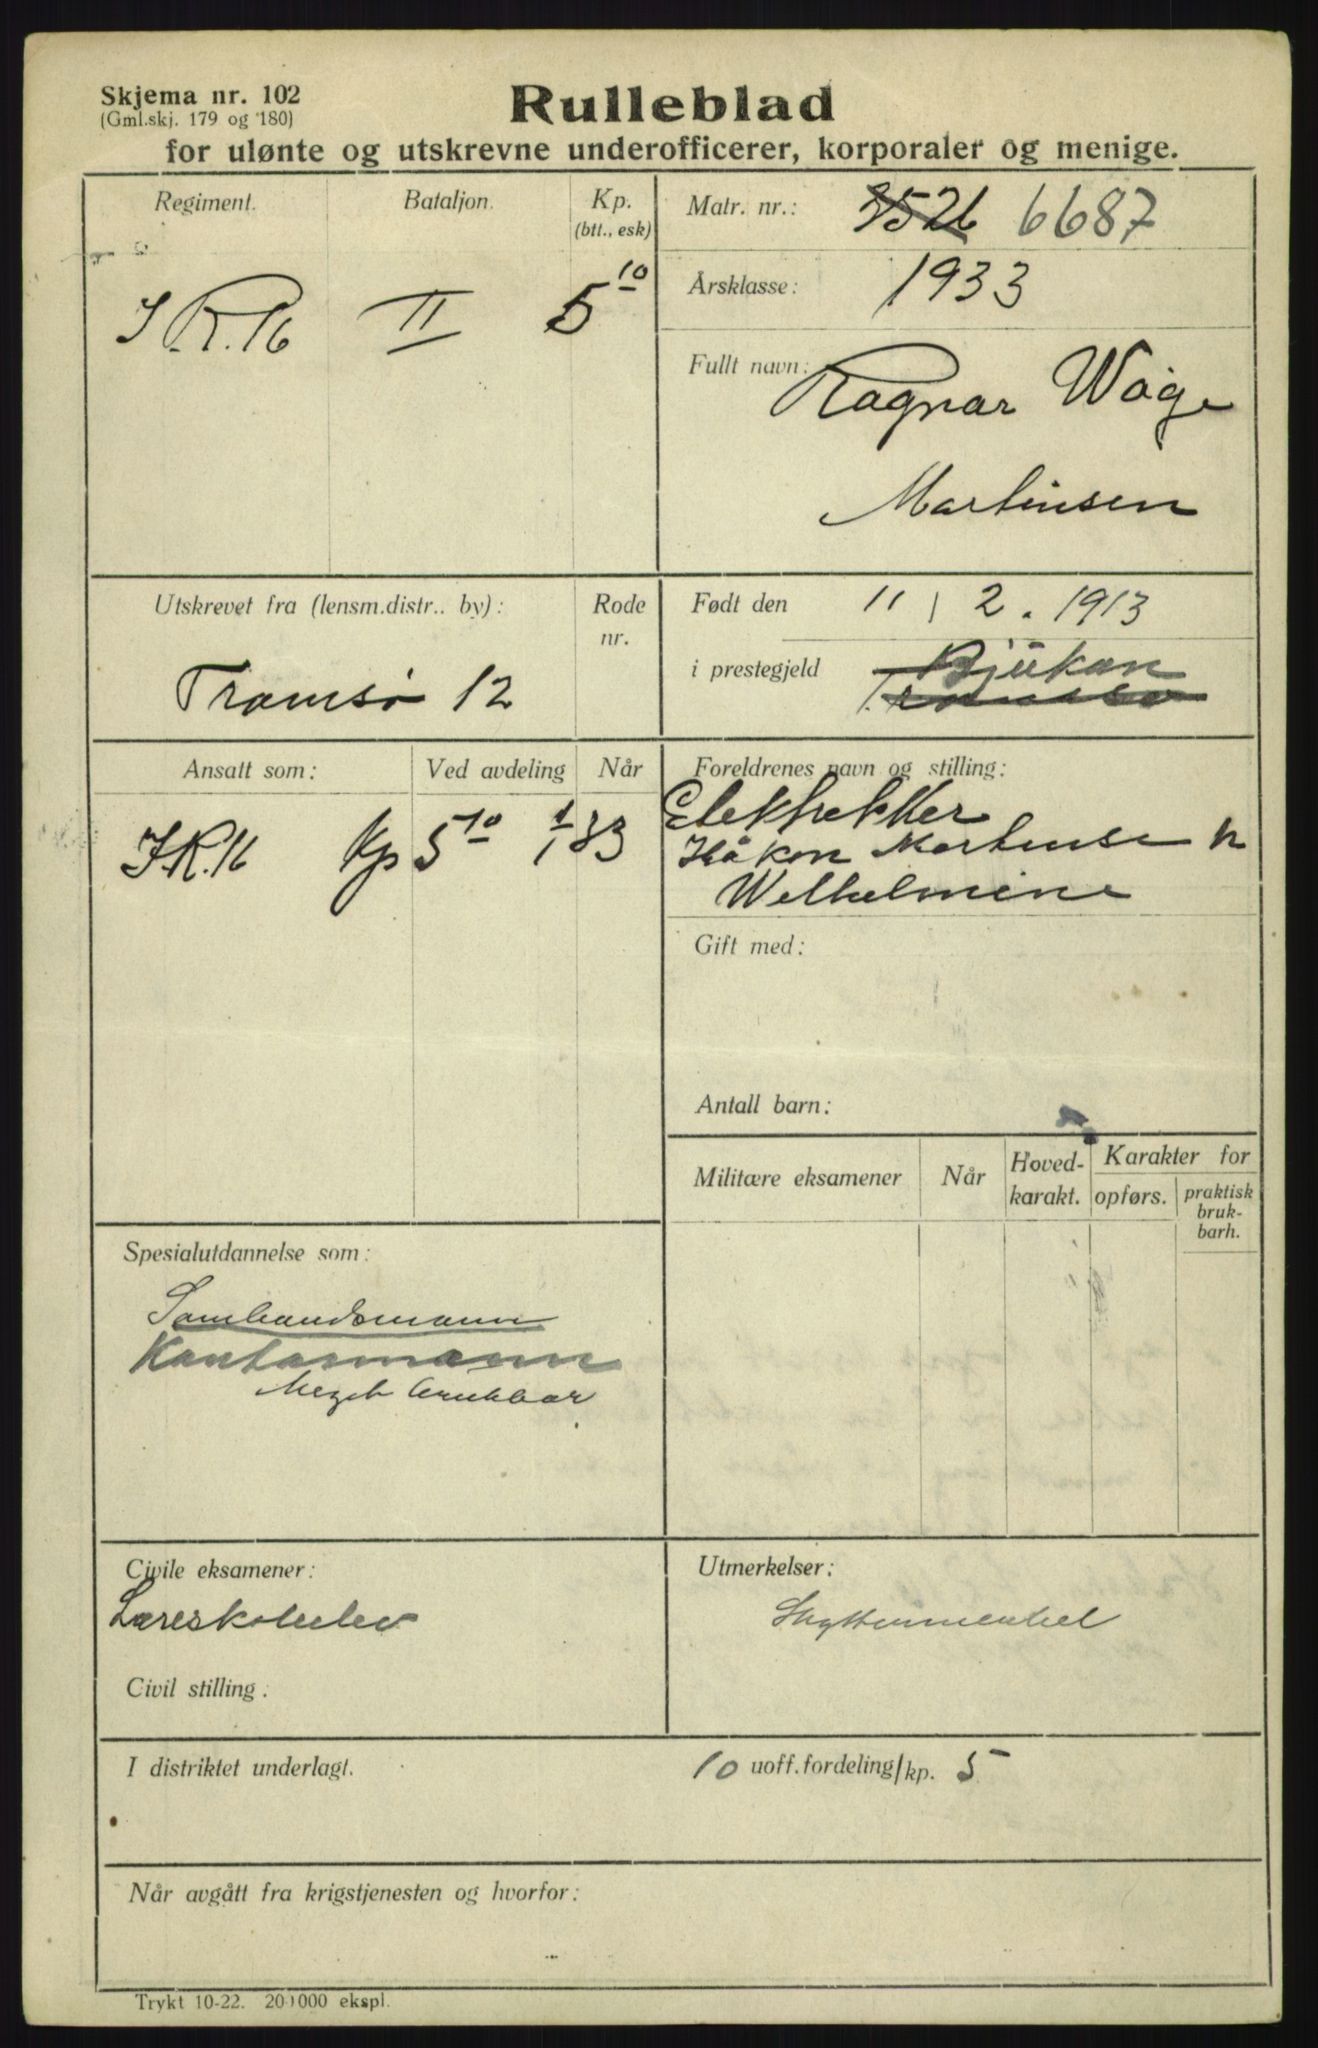 Skjema nr. 102
(Gml.skj. 179 og 180)
Rulleblad
for ulønte og utskrevne underofficerer, korporaler og menige.
Regiment.
I.R.16
Bataljon.
II
Kp.
(btt., esk)
5 10
Matr. nr.: 3526 6687
Årsklasse: 1933
Fullt navn: Ragnar Wåge
Martinsen
Utskrevet fra (lensm.distr.. by):
Tromsø 12
Rode
nr.
Født den 11 / 2 . 1913
i prestegjeld Rjukan
Tromsø
Ansatt som:
I.R.16 Kp
Ved avdeling
5 10
Når
1/1 33
Foreldrenes navn og stilling:
Elektriker
Håkon Martinsen
Wilhelmine
Gift med:
Antall barn:
Militære eksamener
Når
Hoved-
karakt.
Karakter for
opførs.
praktisk
bruk-
barh.
Spesialutdannelse som:
Sambandsmann
Kontormann
Meget brukbar
Civile eksamener:
Læreskoleelev
Civil stilling :
Utmerkelser:
Skyttermerket
I distriktet underlagt.
10 uoff.fordeling/kp. 5
Når avgått fra krigstjenesten og hvorfor:
Trykt 10-22. 200 000 ekspl.